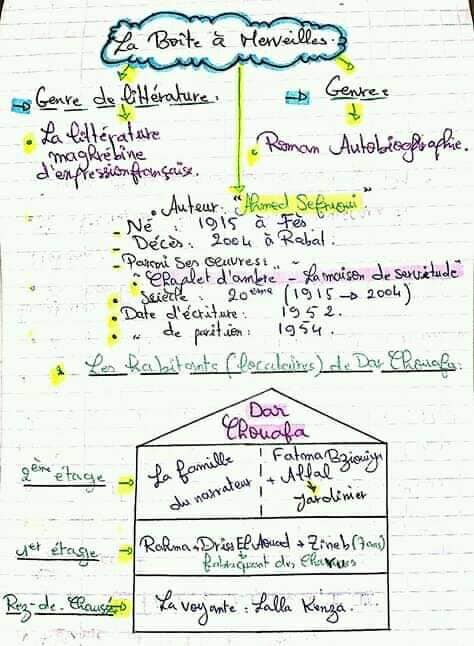 La Boîte à Merveilles.
Genre de littérature.
Genre :
La littérature
maghrébine
d'expression française.
Roman Autobiographie.
Auteur : "Ahmed Sefrioui"
- Né : 1915 à Fès
- Décès : 2004 à Rabat.
- Parmi Ses œuvres :
"Chaplet d'ambre" - "La maison de servitude"
Siècle : 20ème (1915 → 2004)
Date d'écriture : 1952.
" de parition : 1954.
Les habitants (locataires) de Dar Chouafa :
Dar
Chouafa
2ème étage
La famille
du narrateur
Fatma Bziouiya
+ Allal
Jardinier
1er étage
Rahma + Driss El Aouad + Zineb (7 ans)
fabriquant des Charrues
Rez-de-Chaussée
La voyante : Lalla Kenza.